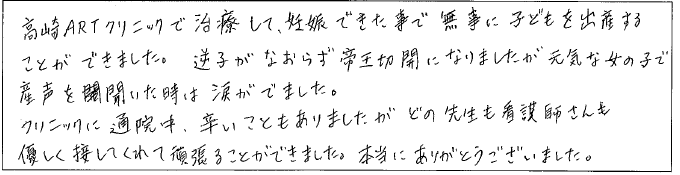 高崎ARTクリニックで治療して、妊娠できた事で無事に子どもを出産する
ことができました。 逆子がなおらず帝王切開になりましたが元気な女の子で
産声を聞いた時は涙がでました。
クリニックに通院中、辛いこともありましたがどの先生も看護師さんも
優しく接してくれて頑張ることができました。本当にありがとうございました。